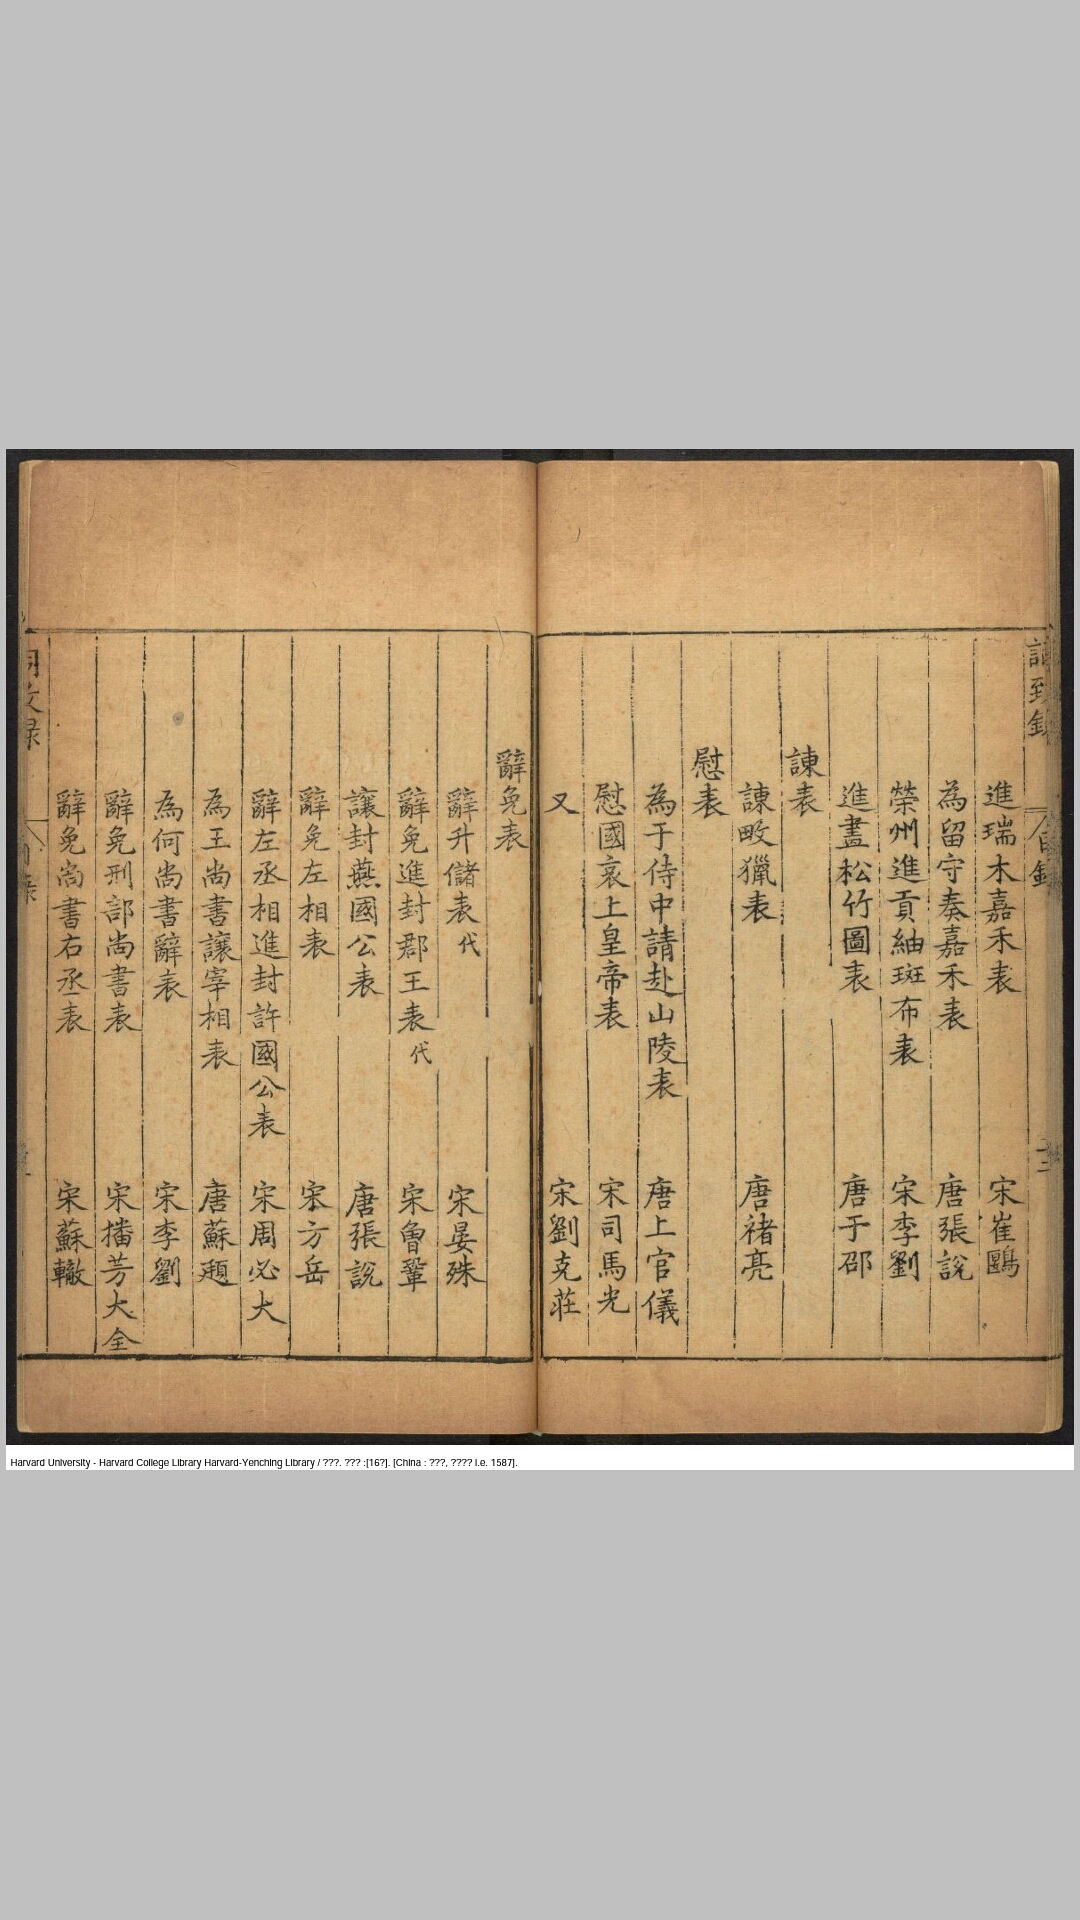 進瑞木嘉禾表 宋崔鷗
為留守奏嘉禾表 唐張說
榮州進貢紬斑布表 宋李劉
進畫松竹圖表 唐于邵
諫表
諫畋獵表 唐褚亮
慰表
為于侍中請赴山陵表 唐上官儀
慰國哀上皇帝表 宋司馬光
又 宋劉克莊
辭免表
辭升儲表代 宋晏殊
辭免進封郡王表代 宋曾鞏
讓封燕國公表 唐張說
辭免左相表 宋方岳
辭左丞相進封許國公表 宋周必大
為王尚書讓宰相表 唐蘇頲
為何尚書辭表 宋李劉
辭免刑部尚書表 宋播芳大全
辭免尚書右丞表 宋蘇轍
Harvard University - Harvard College Library Harvard-Yenching Library / ???. ??? :[16?]. [China : ???, ???? i.e. 1587].